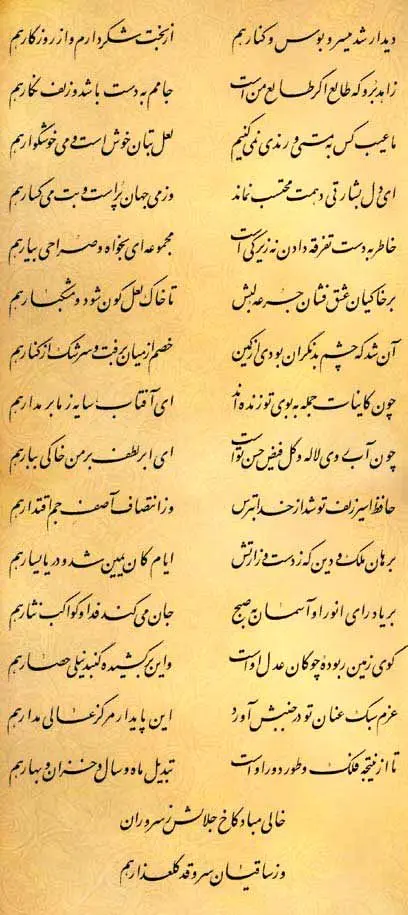 دیدار شد میسر و بوس و کنار هم از بخت شکر دارم و از روزگار هم
زاهد برو که طالع اگر طالع من است جامم به دست باشد و زلف نگار هم
ما عیب کس به مستی و رندی نمی کنیم لعل بتان خوش است و می خوشگوار هم
ای دل بشارتی دهمت محتسب نماند وز می جهان پر است و بت میگسار هم
خاطر به دست تفرقه دادن نه زیرکی است مجموعه ای بخواه و صراحی بیار هم
بر خاکیان عشق فشان جرعه لبش تا خاک لعل گون شود و مشکبار هم
آن شد که چشم بد نگران بودی از کمین خصم از میان برفت و سرشک از کنار هم
چون کاینات جمله به بوی تو زنده اند ای آفتاب سایه ز ما بر مدار هم
چون آب روی لاله و گل فیض حسن توست ای ابر لطف بر من خاکی ببار هم
حافظ اسیر زلف تو شد از خدا بترس وز انتصاف آصف جم اقتدار هم
برهان ملک و دین که ز دست وزارتش ایام کان یمین شد و دریا یسار هم
بر یاد رای انور او آسمان به صبح جان می کند فدا و کواکب نثار هم
گوی زمین ربوده چوگان عدل اوست وین برکشیده گنبد نیلی حصار هم
عزم سبک عنان تو در جنبش آورد این پایدار مرکز عالی مدار هم
تا از نتیجه فلک و طور دور اوست تبدیل ماه و سال و خزان و بهار هم
خالی مباد کاخ جلالش ز سروران
وز ساقیان سرو قد گلعذار هم